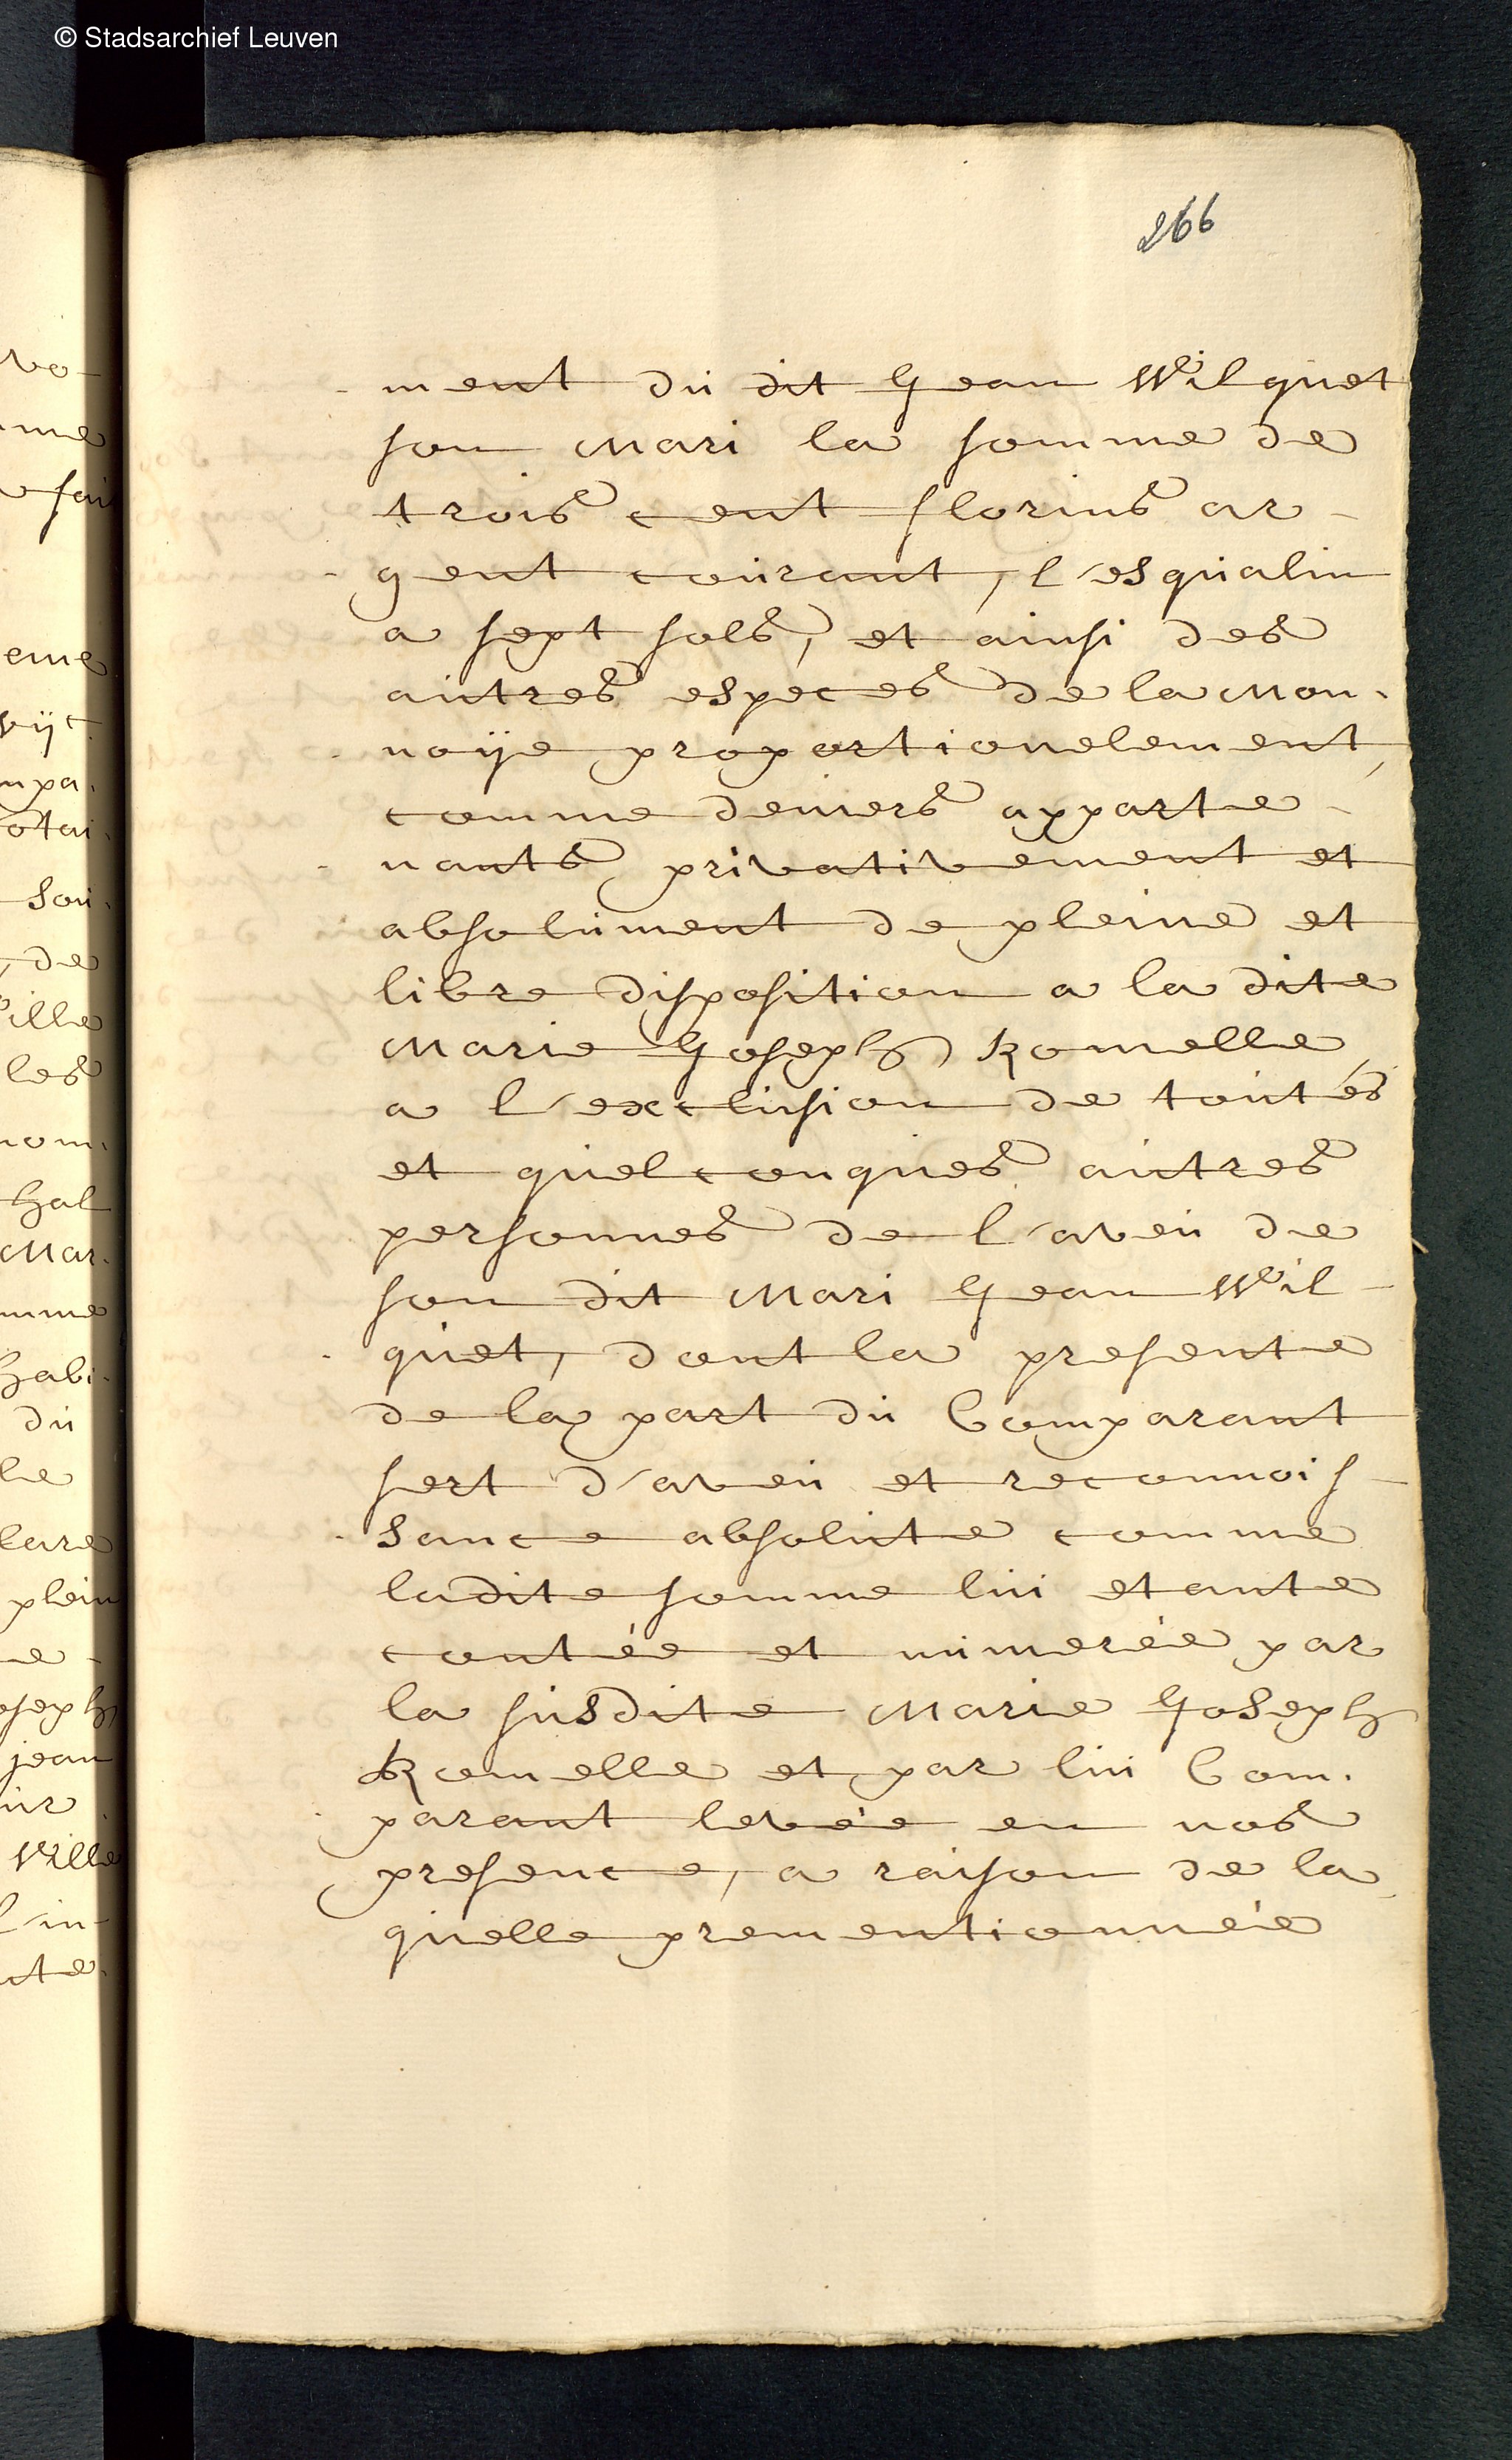 © Stadsarchief Leuven
266
ment du dit Jean Wilquet
son Mari la somme de
trois cent florins ar-
gent courant, l'esqualin
a sept sols, et ainsi des
autres especes de la Mon-
noije proportionelement,
comme deniers apparte-
nants privativement et
absolument de pleine et
libre disposition a la dite
Marie Joseph Romelle,
a l'exclusion de toutes
et quelconques autres
personnes de l'aveu de
son dit Mari Jean Wil-
quet, dont la presente
de la part du Comparant
sert d'aveu et reconnois-
sance absolute comme
ladite somme lui etante
contée et numerée par
la susdite Marie Joseph
Romelle et par lui Com-
parant levée en nos
presence, a raison de la
quelle prementionnée